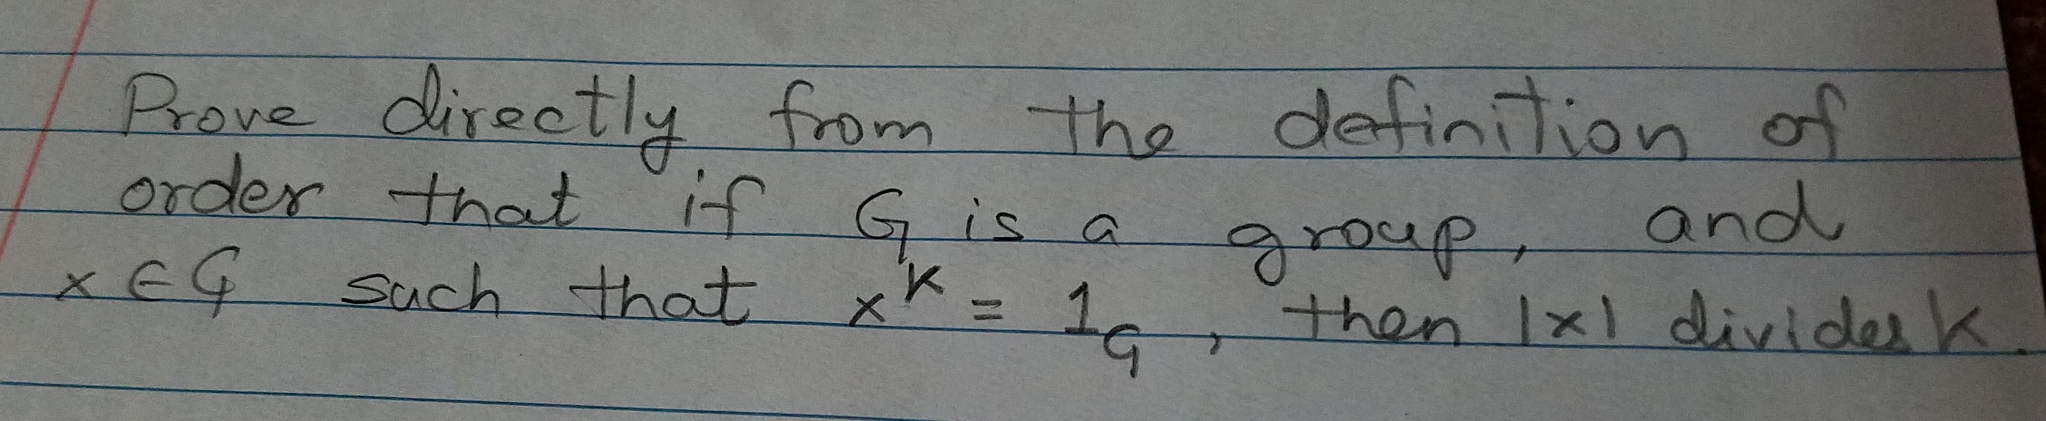 Prove directly from the definition of
order that if G is a group, and
x ∈ G such that x^k = 1_G, then |x| divides k.